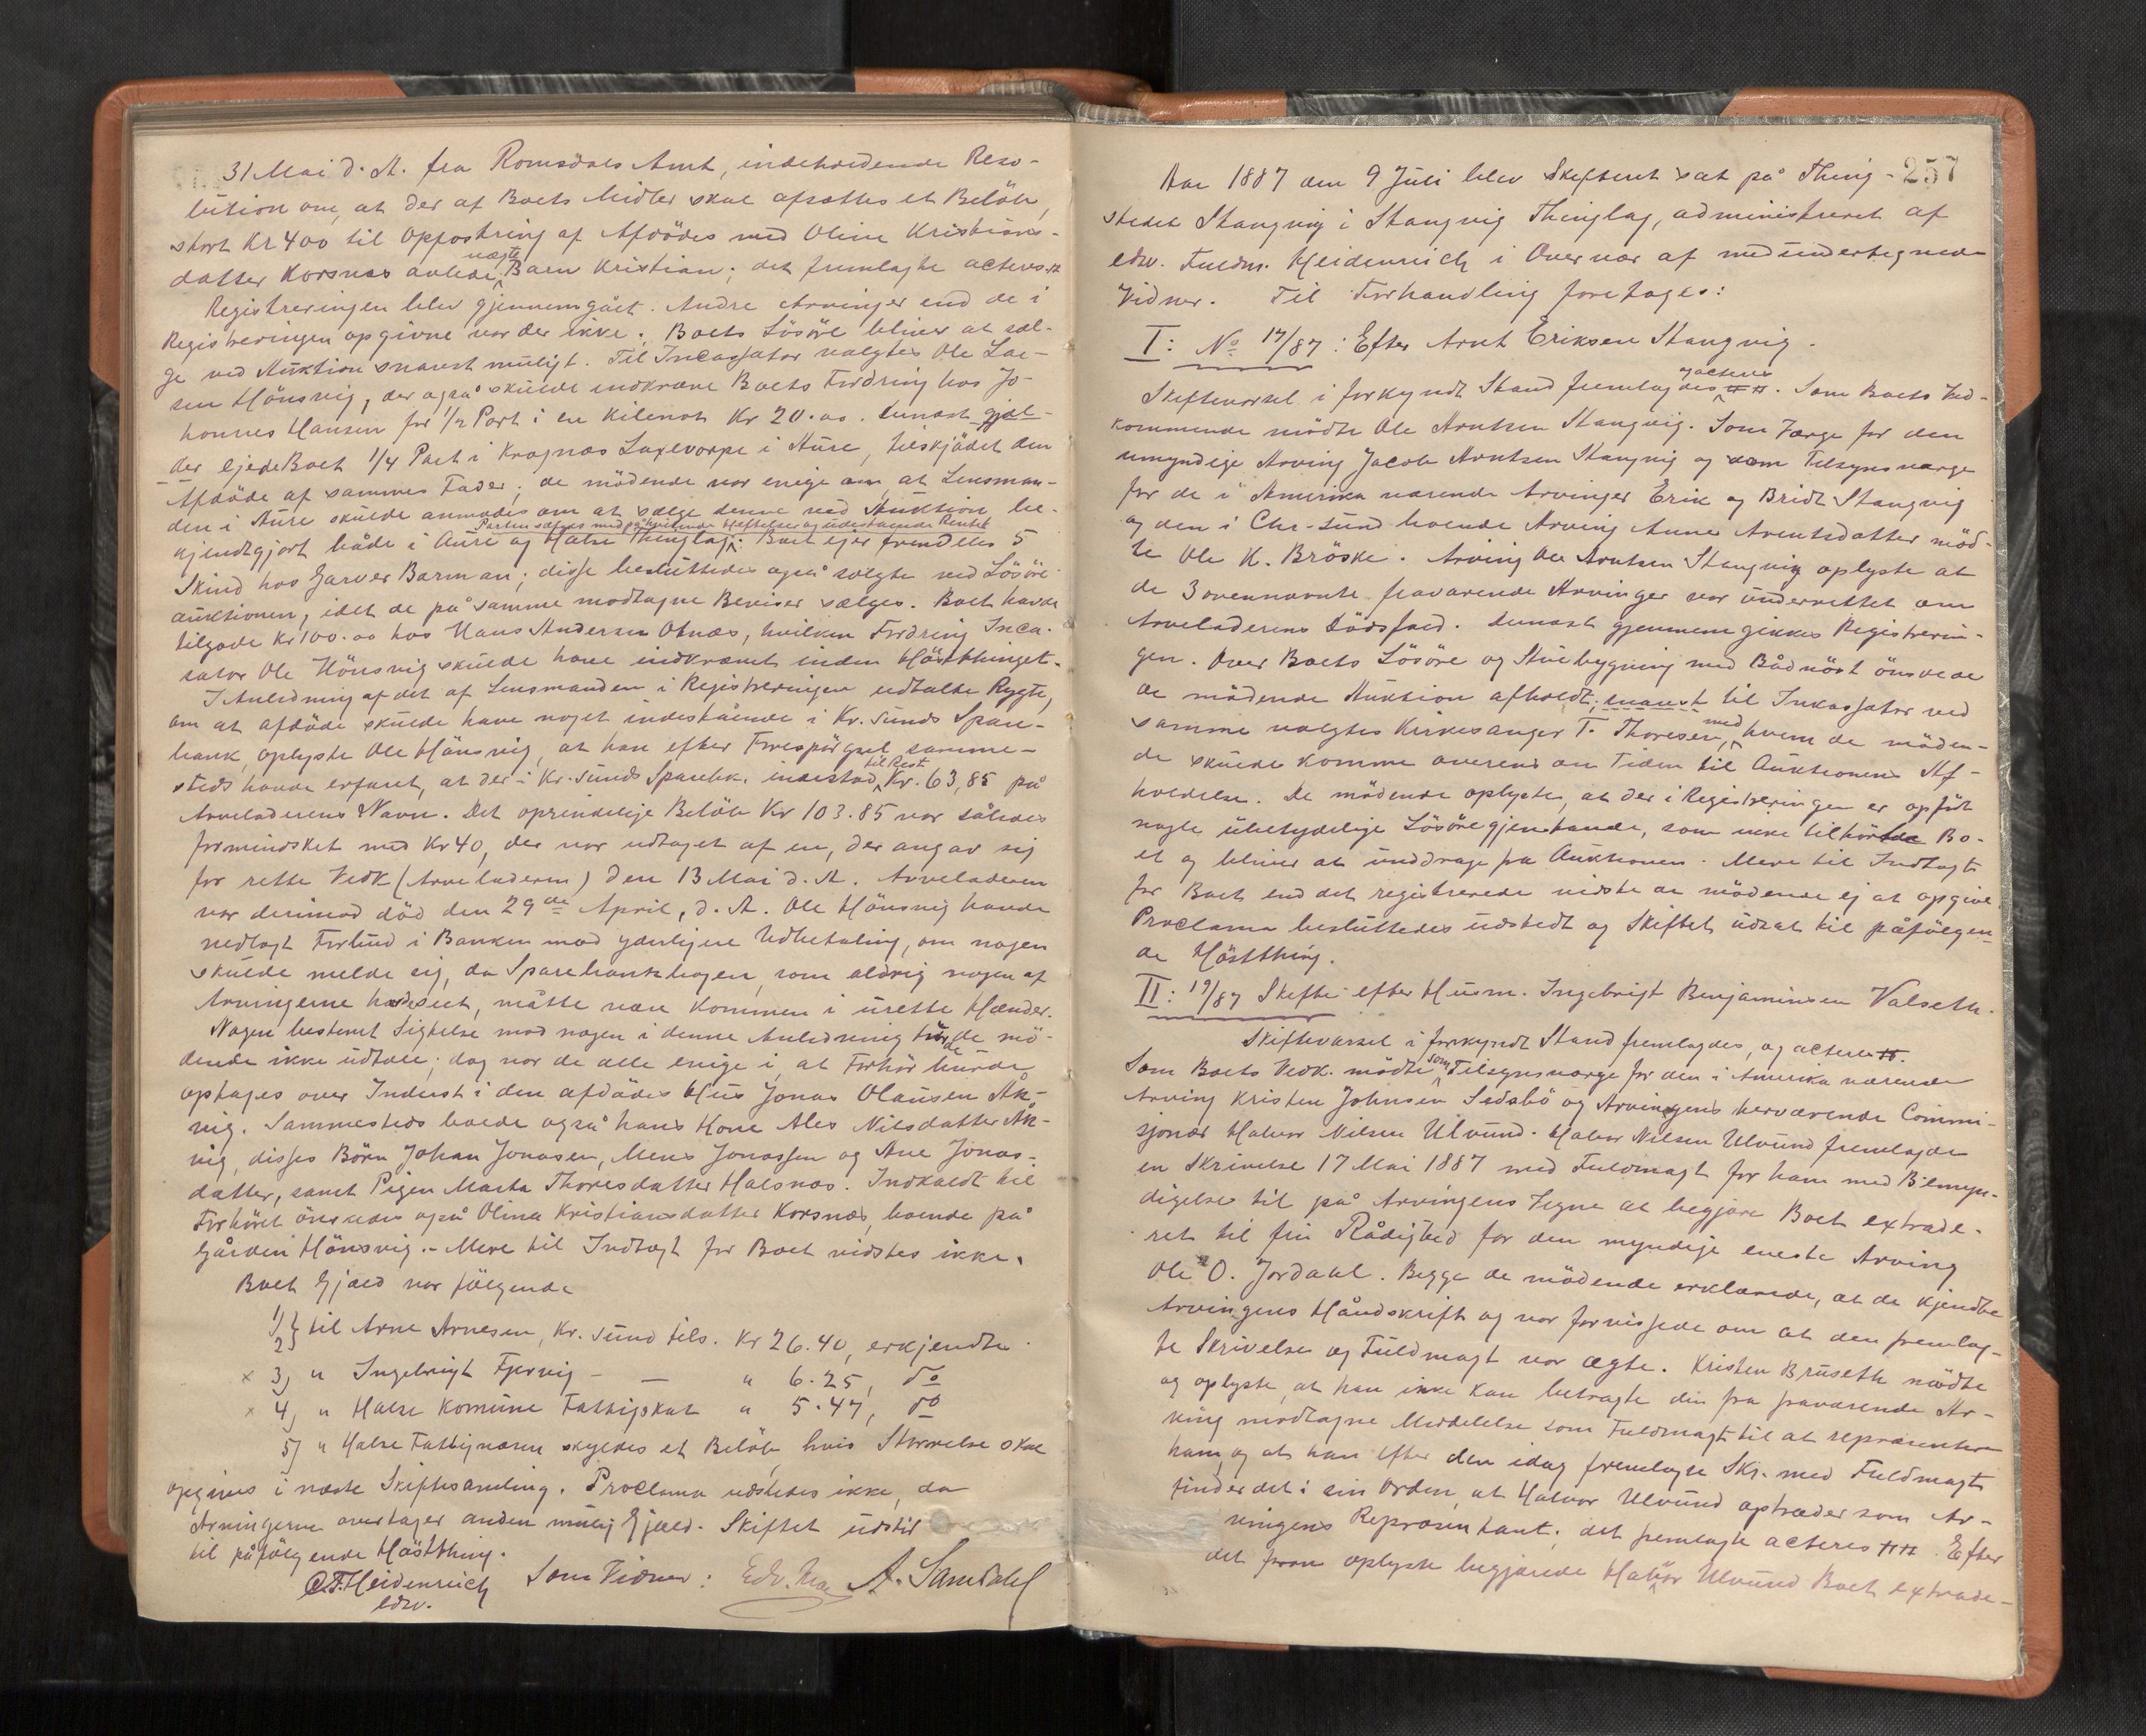 31 Mai d. A. fra Romsdals Amt, indeholdende Reso-
lution om, at der af Boets Midler skal afsættes et Beløb,
stort Kr 400 til Opfostring af Afdødes med Oline Kristians-
datter Korsnæs avlede uægte Barn Kristian; det fremlagte acteres
Registreringen blev gjennemgået. Andre Arvinger end de i
Registreringen opgivne var der ikke. Boets Løsøre bliver at sæl-
ge ved Auktion snarest muligt. Til Incassator valgtes Ole Lar-
sen Hönsvig, der også skulde indkræve Boets Fordring hos Jo-
hannes Hansen for 1/2 Part i en Kilenot Kr 20.00. Dernæst gjæl-
der ejede Boet 1/4 Part i Kragnæs Laxevorpe i Aure, tilskjødet den
Afdøde af sammes Fader; de mødende var enige om, at Lensman-
den i Aure skulde anmodes om at sælge denne ved Auktion be-
Parten sælges med påhvilende Heftelser og udestaaende Renter
kjendtgjort både i Aure og Halse Thinglag. Boet ejer fremdeles 5
Skind hos Garver Barman; disse besluttedes også solgte ved Løsøre
auktionen, idet de på samme modtagne Beviser sælges. Boet havde
tilgode Kr 100.00 hos Hans Andersen Otnæs, hvilken Fordring Inca-
sator Ole Hönsvig skulde have indkrævet inden Høstthinget.
I Anledning af det af Lensmanden i Registreringen udtalte Rygte,
om at afdøde skulde have noget indestående i Kr. sunds Spare-
bank, oplyste Ole Hönsvig, at han efter Forespørgsel samme-
steds havde erfaret, at der i Kr. sunds Sparebk. indestod til Rest Kr. 63,85 på
Arveladerens Navn. Det oprindelige Beløb Kr 103.85 var således
formindsket med Kr 40, der var udtaget af en, der angav sig
for rette Vedk (Arveladeren) den 13 Mai d. A. Arveladeren
var derimod død den 29de April, d. A. Ole Hönsvig havde
nedlagt Forbud i Banken mod yderligere Udbetaling, om nogen
skulde melde sig, da Sparebankbogen, som aldrig nogen af
Arvingerne havde seet, måtte være kommen i urette Hænder.
Nogen bestemt Sigtelse mod nogen i denne Anledning turde de mö-
dende ikke udtale; dog var de alle enige i, at Forhör burde
optages over Inderst i den afdødes Hus Jonas Olausen Åk-
vig. Sammesteds boede også hans Kone Ales Nilsdatter Åk-
vig, disses Børn Johan Jonasen, Mons Jonassen og Ane Jonas-
datter, samt Pigen Marta Thoresdatter Halsnæs. Indkaldt til
Forhöret önskedes også Olina Kristiansdatter Korsnæs, boende på
Gården Hönsvig. - Mere til Indtægt for Boet vidstes ikke.
Boet Gjæld var følgende
1)
2} til Arne Arnesen, Kr. sund tils. Kr 26.40, erkjendte
x 3) " Ingebrigt Fjervig - — " 6.25, do
x 4) " Halse Komune Fattigskat " 5.47, do
5) " Halse Fattigvæsen skyldes et Beløb, hvis Størrelse skal
opgives i næste Skiftesamling. Proclama udstedes ikke, da
Arvingerne overtager anden mulig Gjæld. Skiftet udstår
til påfølgende Høstthing.
C.F. Heidenreich Som Vidner: Edv. A. Samdahl
edsv.
Aar 1887 den 9 Juli blev Skifteret sat på Thing- 257
stedet Stangvig i Stangvig Thinglag, administreret af
edsv. Fuldm. Heidenreich i Overvær af medundertegnede
Vidner. Til Forhandling foretages:
I: No 17/87: Efter Arnt Eriksen Stangvig.
Skiftevarsel i forkyndt Stand fremlagdes og acteres. Som Boets Ved-
kommende mödte Ole Arntsen Stangvig. Som Værge for den
umyndige Arving Jacob Arntsen Stangvig og som Tilsynsværge
for de i Amerika værende Arvinger Erik og Bridt Stangvig
og den i Chr-sund boende Arving Anne Arentsdatter möd-
te Ole K. Bröske. Arving Ole Arntsen Stangvig oplyste at
de 3 ovennævnte fraværende Arvinger var underrettet om
Arveladerens Dødsfald. Dernæst gjennemgikkes Registrerin-
gen. Over Boets Løsøre og Stuebygning med Bådnöst önskede
de mödende Auktion afholdt, snarest til Inkassator ved
samme valgtes Kirkesanger T. Thoresen, med hvem de möden-
de skulde komme overens om Tiden til Auktionens Af-
holdelse. De mödende oplyste, at der i Registreringen er opført
nogle ubetydelige Løsøregjenstande, som ikke tilhörte Bo-
et og bliver at unddrage fra Auktionen. Mere til Indtægt
for Boet end det registrerede vidste de mödende ej at opgive.
Proclama besluttedes udstedt og Skiftet udsat til påfølgen-
de Høstthing.
II: 19/87 Skifte efter Husm. Ingebrigt Benjaminsen Valseth.
Skiftevarsel i forkyndt Stand fremlagdes, og acteres.
Som Boets Vedk. mødte som Tilsynsværge for den i Amerika værende
Arving Kristen Johnsen Sedsbö og Arvingens herværende Commi-
sjonær Halvor Nilsen Ulvund. Halvor Nilsen Ulvund fremlagde
en Skrivelse 17 Mai 1887 med Fuldmagt for ham med Bemyn-
digelse til på Arvingens Vegne at begjære Boet extrade-
ret til fri Rådighed for den myndige eneste Arving
Ole O. Jordahl. Begge de mødende erklærede, at de kjendte
Arvingens Håndskrift og var forvissede om at den fremlag-
te Skrivelse og Fuldmagt var ægte. Kristen Bruseth mødte
og oplyste, at han ikke kan betragte din fra fraværende Ar-
ving modtagne Meddelelse som Fuldmagt til at repræsentere
ham, og at han efter den idag fremlagte Skr. med Fuldmagt
finder det i sin Orden, at Halvor Ulvund optræder som Ar-
vingens Repræsentant; det fremlagte acteres. Efter
det fram oplyste begjærede Halvor Ulvund Boet extrade-